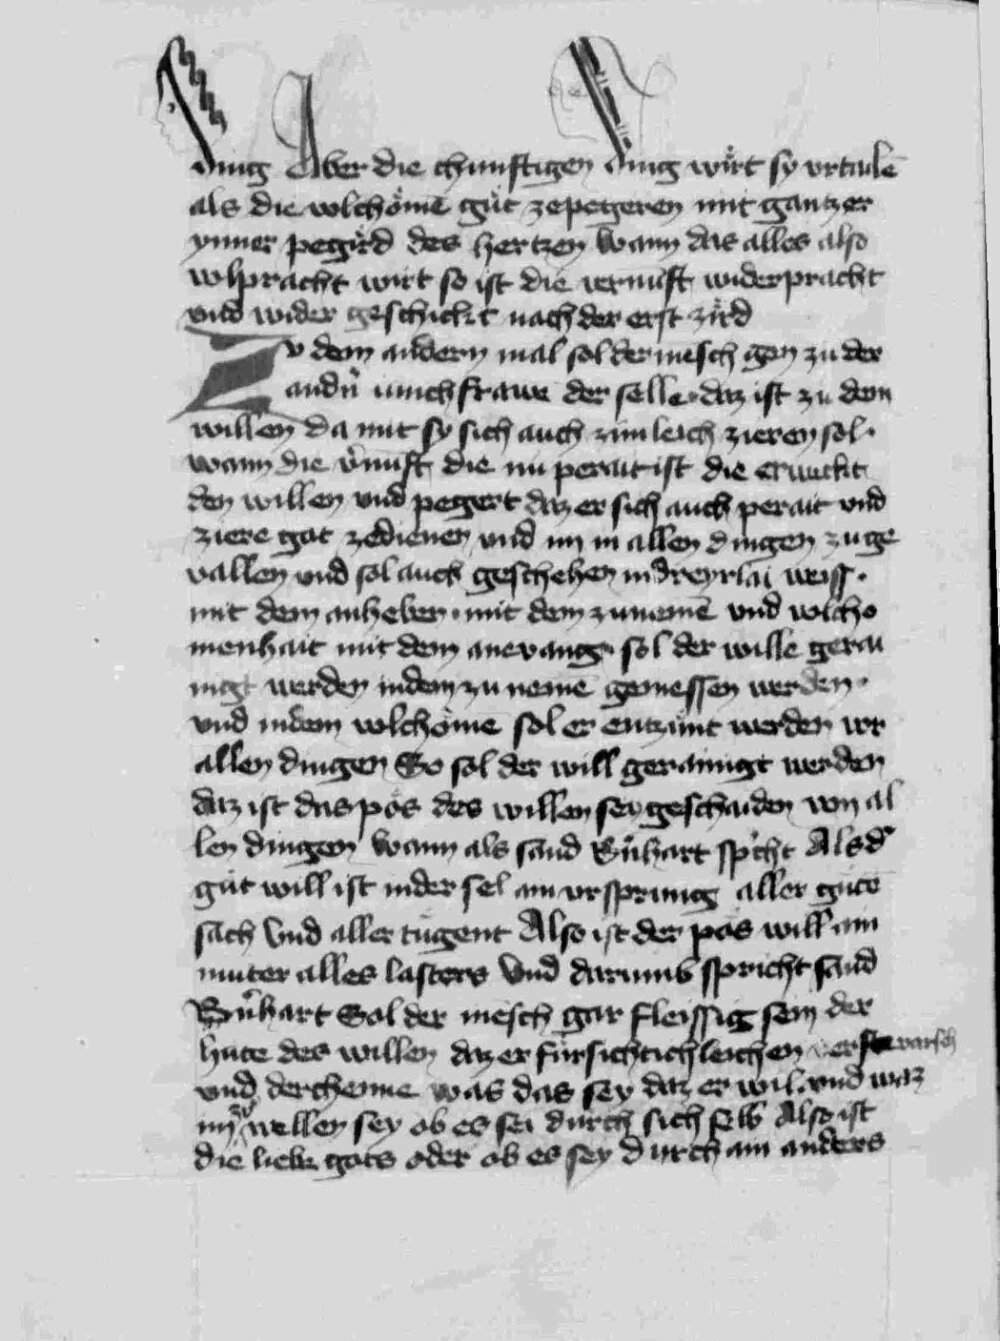 ding Aber die chunftigen ding wirt sy vrtailē
als die volchömē gůt zepegeren mit gantzer
ynner pegird des hertzen Wann das alles also
volpracht wirt so ist die vernuft widerpracht
vnd wider geschickt nach der erst zird
Zv dem andern mal sol der mēsch gen zu der
andn̄ iunchfrawe der selle daz ist zu dem
willen da mit sy sich auch zimleich zieren sol·
wann die v̄nuft die nu perait ist die erwekt
den willen vnd pegert daz er sich auch perait vnd
ziere got zedienen vnd im in allen dingen zu ge
vallen vnd sol auch geschehen in dreyrlai weiss·
mit dem anheben· mit dem zunemē vnd volcho
menhait mit dem anevang· sol der wille gerai
nigt werden in dem zu nemē gemessen werden·
vnd in dem volchöme sol er entzunt werden vor
allen dingen So sol der will gerainigt werden
daz ist das pös des willen sey geschaiden von al
len dingen Wann als sand Bn̄hart sp̄cht Als d̄
gůt will ist in der sel ain vrsprung aller gůtē
sach Vnd aller tugent Also ist der pös will ain
muter alles lasters Vnd darumb spricht sand
Bn̄hart Sol der mēsch gar fleissig sein der
hute des willen daz er fürsichtichleichen
vnd derchenne was das sey daz er wil· vnd waz
im zu wellen sey ob es sei durch sich selb Also ist
die lieb gots oder ob es sey durch ain anders